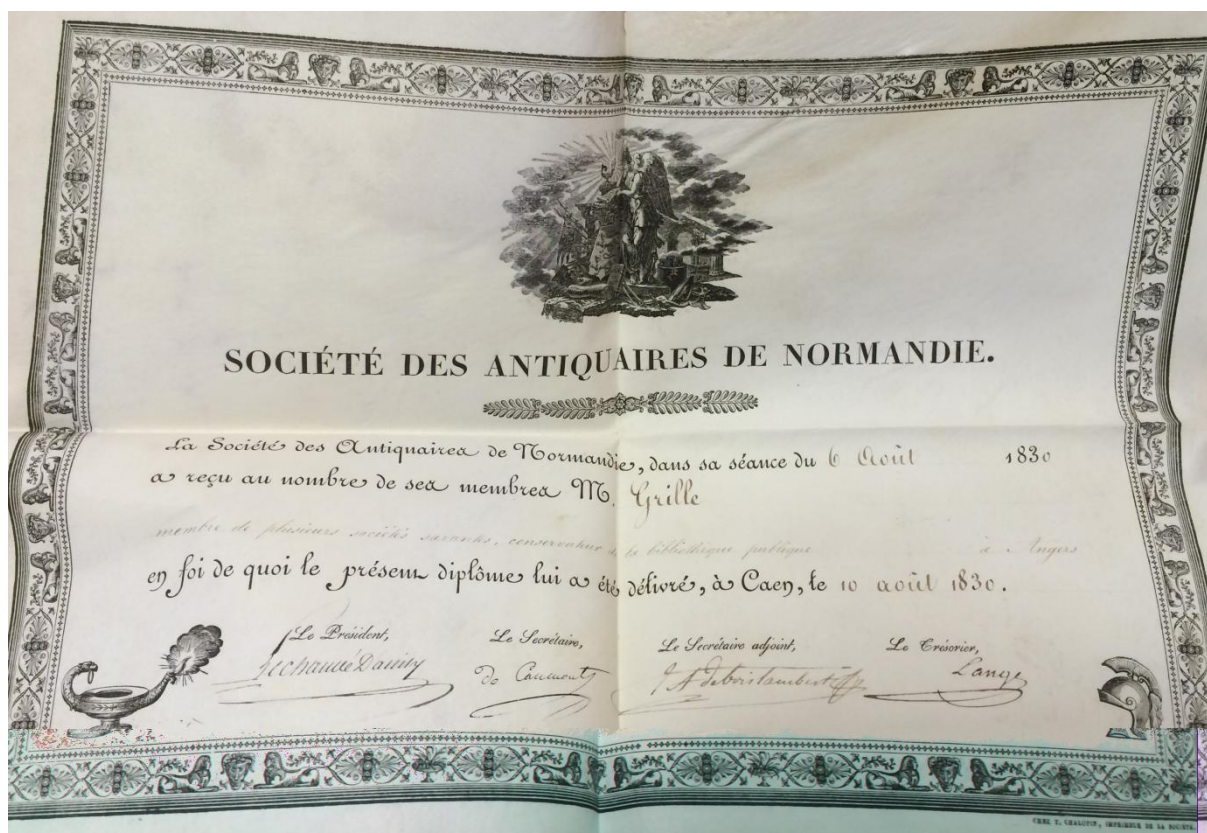 SOCIÉTÉ DES ANTIQUAIRES DE NORMANDIE.
La Société des Antiquaires de Normandie, dans sa séance du 6 Août 1830
a reçu au nombre de ses membres M. Grille
membre de plusieurs sociétés savantes, conservateur de la bibliothèque publique à Angers
en foi de quoi le présent diplôme lui a été délivré, à Caen, le 10 août 1830.
Le Président, Le Secrétaire, Le Secrétaire adjoint, Le Trésorier,
De Caumont Lange
CHEZ T. CHALOPIN, IMPRIMEUR DE LA SOCIÉTÉ.